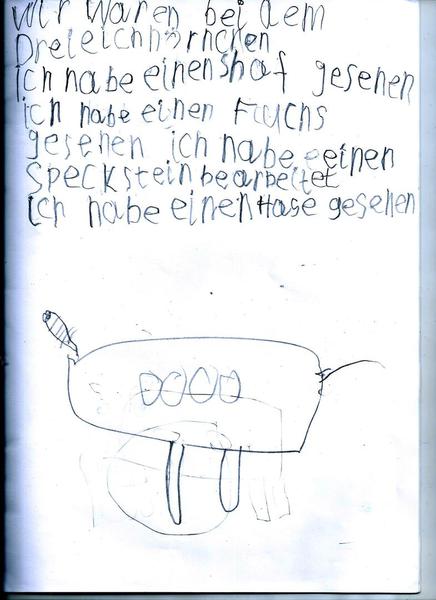 wir waren bei dem
Dreieichhörnchen
ich habe einen shaf gesehen
ich habe einen Fuchs
gesehen ich habe einen
Speckstein bearbeitet
ich habe einen Hase gesehen